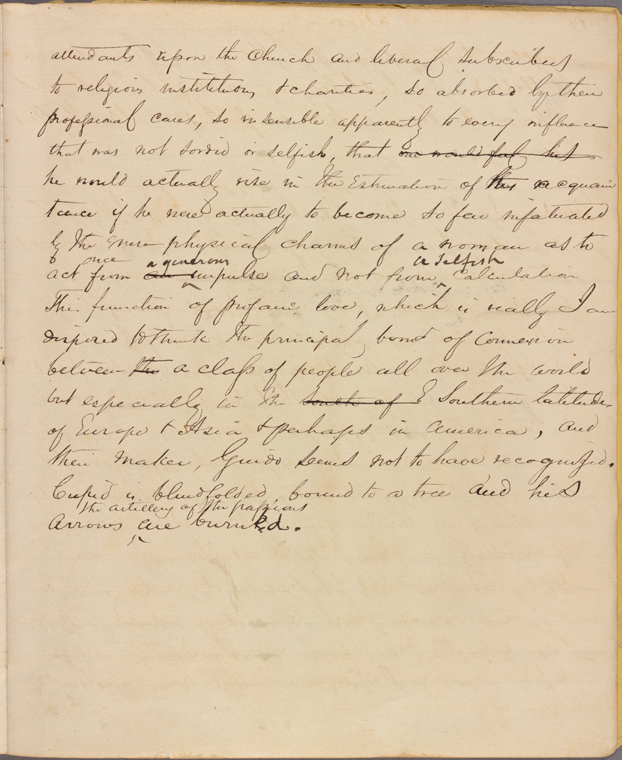 attendants upon the Church and liberal subscribers
to religious institutions & charities, so absorbed by their
professional cares, so insensible apparently to every influence
that was not sordid or selfish, that one would feel that
he would actually rise in the Estimation of his acquain
tance if he were actually to become so far infatuated
by the mere physical charms of a woman as to
once a generous a selfish
act from an impulse and not from calculation
This function of profane love, which is really I am
disposed to think the principal bond of connexion
between the a class of people all over the world
but especially in the South of E Southern latitudes
of Europe & Asia & perhaps in america, and
their maker, Guido seems not to have recognized.
Cupid is blindfolded, bound to a tree and his
the artillery of the passions
arrows are burned.